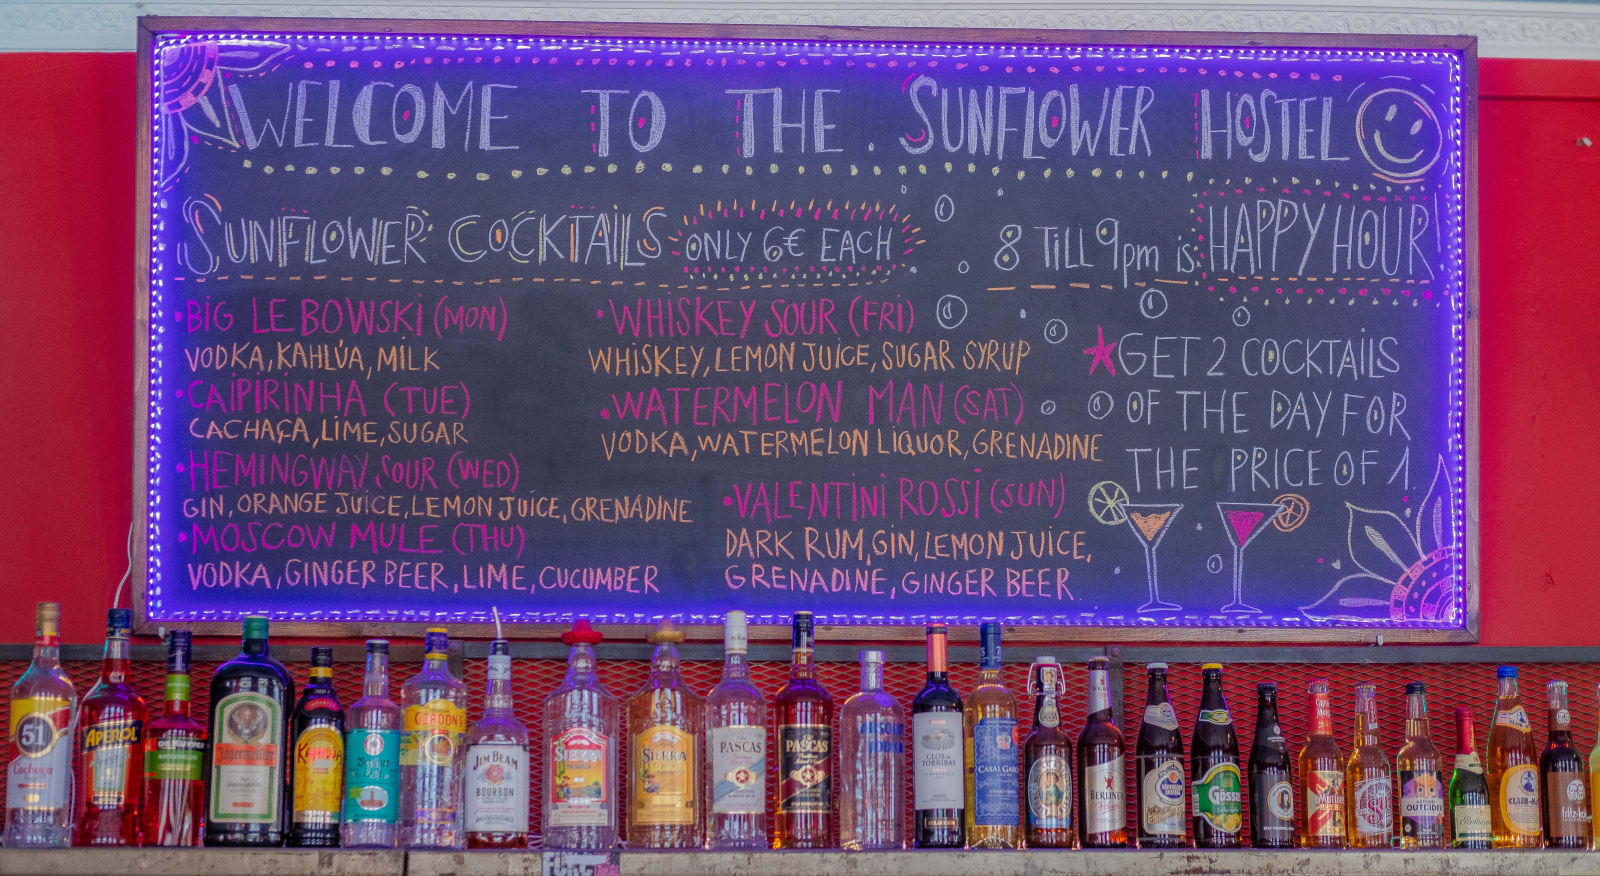 WELCOME TO THE SUNFLOWER HOSTEL
SUNFLOWER COCKTAILS ONLY 6€ EACH
• BIG LE BOWSKI (MON)
VODKA, KAHLÚA, MILK
• CAIPIRINHA (TUE)
CACHAÇA, LIME, SUGAR
• HEMINGWAY SOUR (WED)
GIN, ORANGE JUICE, LEMON JUICE, GRENADINE
• MOSCOW MULE (THU)
VODKA, GINGER BEER, LIME, CUCUMBER
• WHISKEY SOUR (FRI)
WHISKEY, LEMON JUICE, SUGAR SYRUP
• WATERMELON MAN (SAT)
VODKA, WATERMELON LIQUOR, GRENADINE
• VALENTINI ROSSI (SUN)
DARK RUM, GIN, LEMON JUICE,
GRENADINE, GINGER BEER
8 TILL 9pm is HAPPY HOUR
GET 2 COCKTAILS
OF THE DAY FOR
THE PRICE OF 1.
51
Cachaça
APEROL
DE KUYPER
WATERMELON
Jägermeister
KAHLÚA
GORDON'S
JIM BEAM
BOURBON
SIERRA
SIERRA
PASCAS
PASCAS
ABSOLUT
VODKA
CLOS
TORRIBAS
BERLINER
Gösser
OUTCIDER
CLUB-MA
fritz-ko